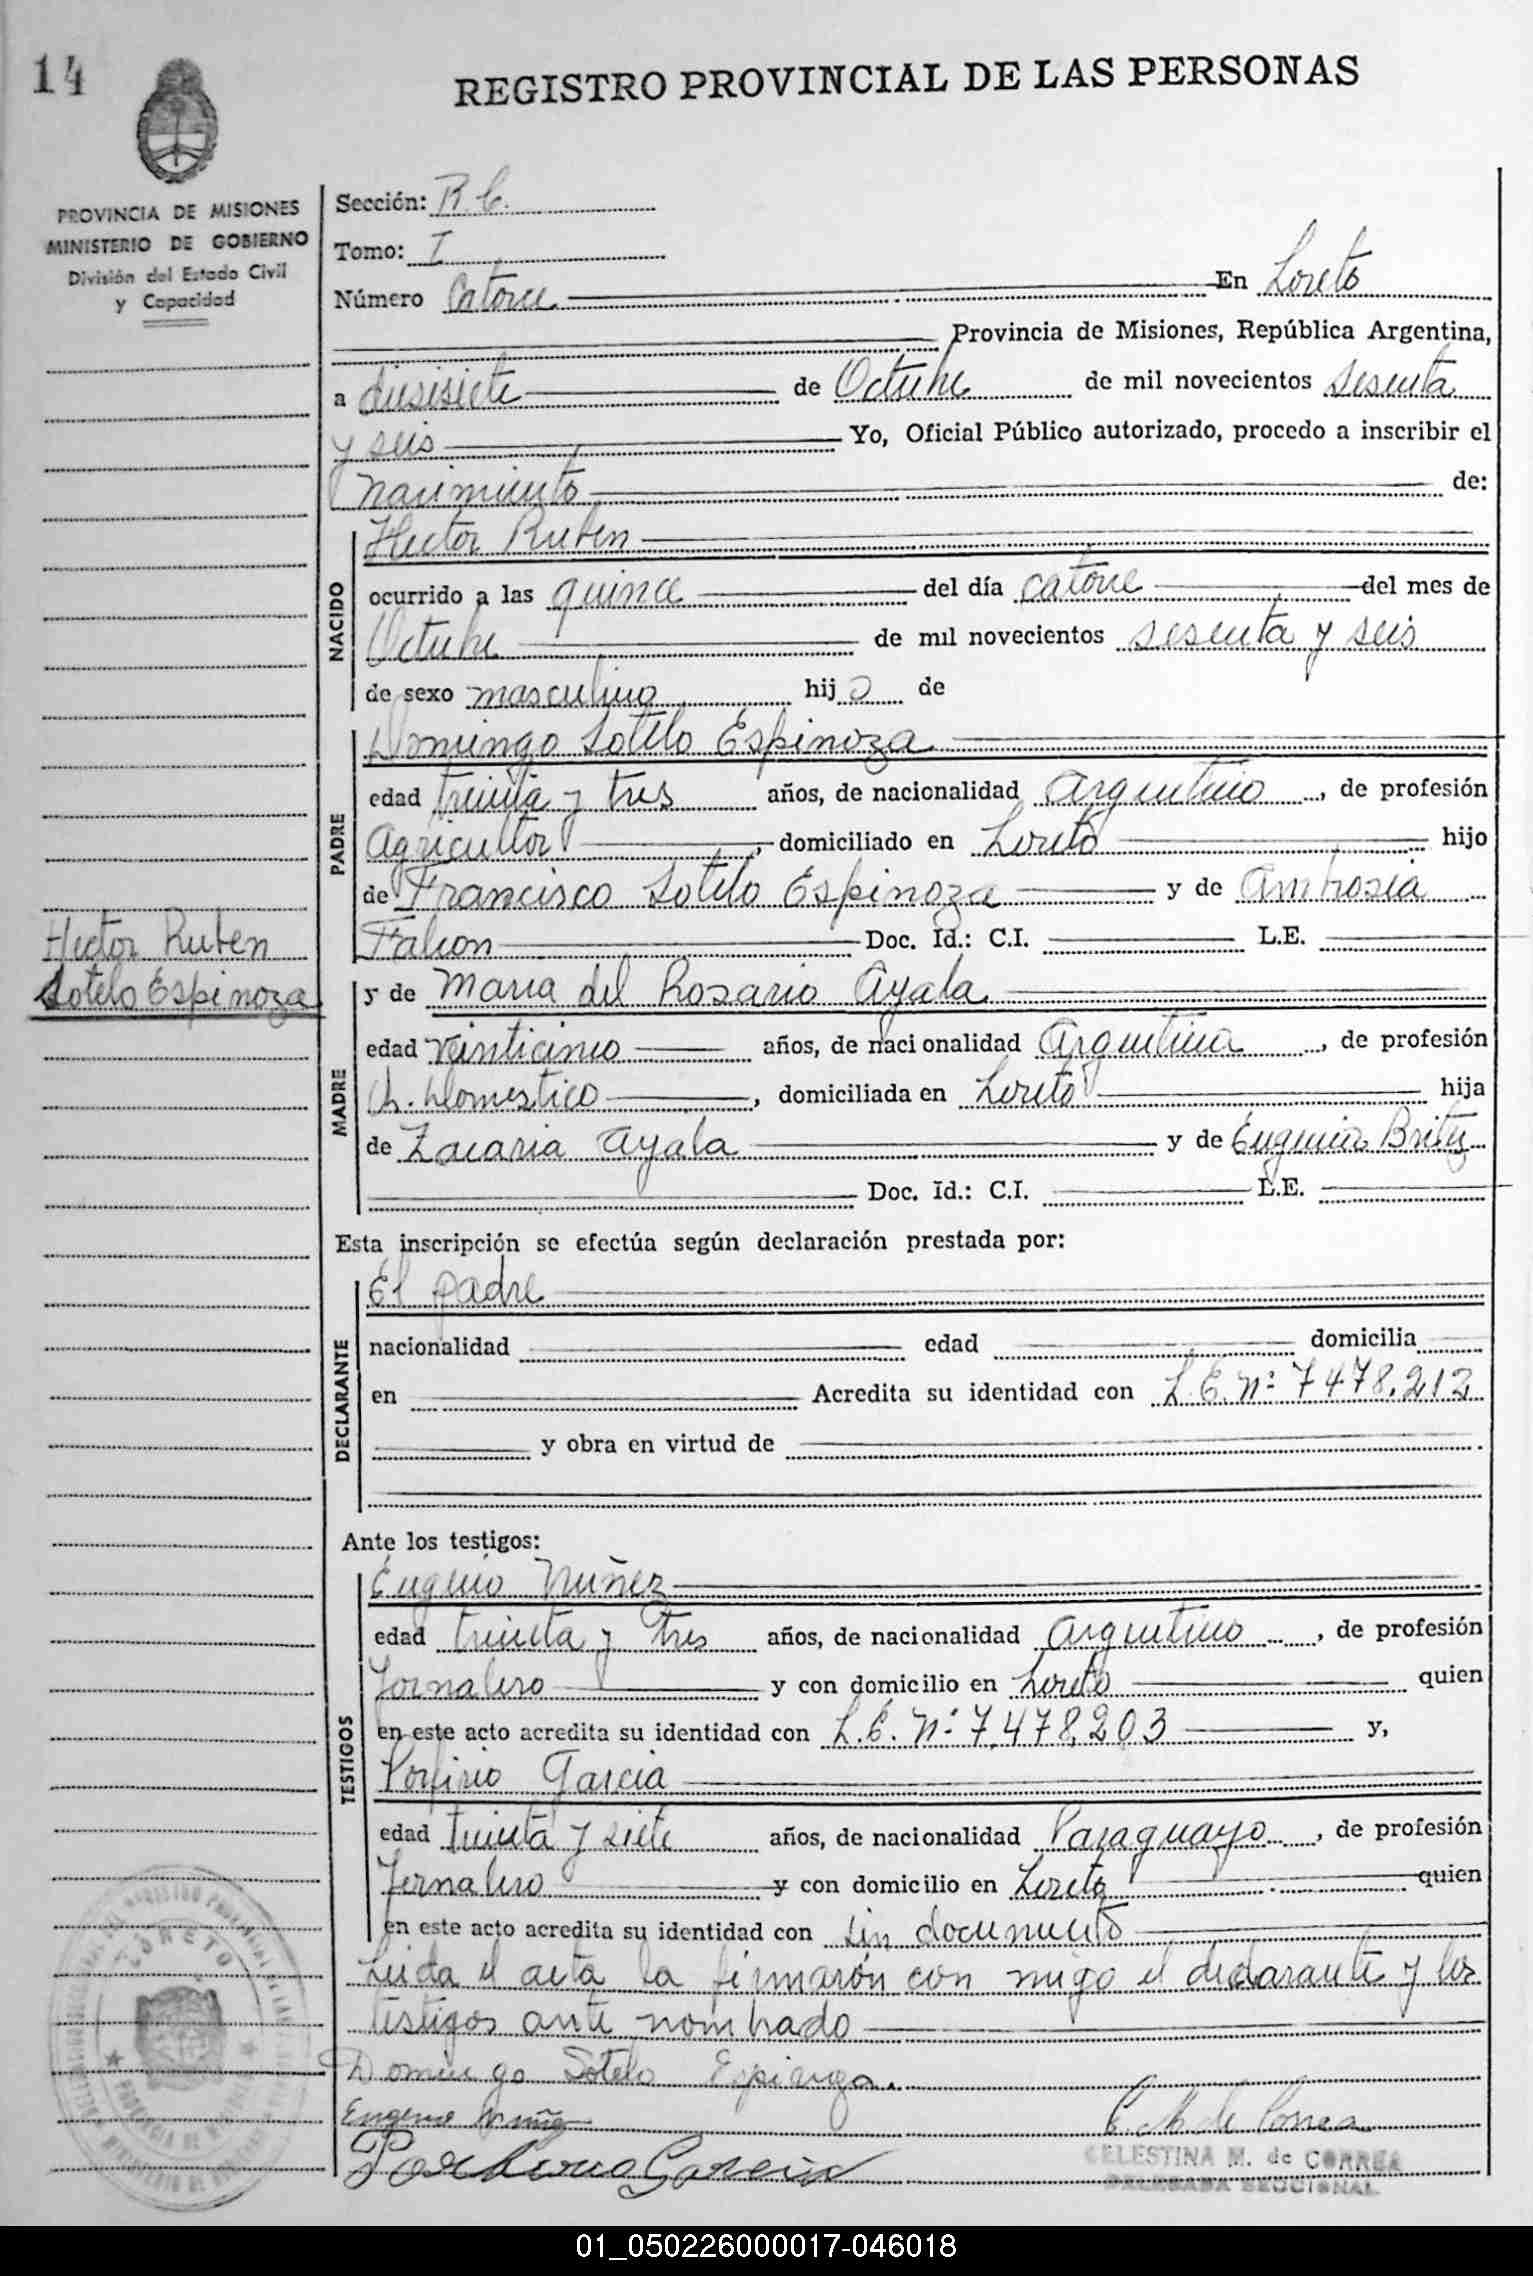 14
REGISTRO PROVINCIAL DE LAS PERSONAS
PROVINCIA DE MISIONES
MINISTERIO DE GOBIERNO
División del Estado Civil
y Capacidad
Sección: R. C.
Tomo: I
Número Catorce En Loreto
Provincia de Misiones, República Argentina,
a diesisiete de Octubre de mil novecientos sesenta
y seis Yo, Oficial Público autorizado, procedo a inscribir el
nacimiento de:
NACIDO
Hector Ruben
ocurrido a las quince del día catorce del mes de
Octubre de mil novecientos sesenta y seis
de sexo masculino hij o de
PADRE
Domingo Sotelo Espinoza
edad treinta y tres años, de nacionalidad argentino, de profesión
Agricultor, domiciliado en Loreto hijo
de Francisco Sotelo Espinoza y de Ambrosia
Falcon Doc. Id.: C.I. L.E.
Hector Ruben
Sotelo Espinoza
MADRE
y de Maria del Rosario Ayala
edad veinticinco años, de nacionalidad Argentina, de profesión
Q. Domestico, domiciliada en Loreto hija
de Zacaria Ayala y de Eugenia Britez
Doc. Id.: C.I. L.E.
Esta inscripción se efectúa según declaración prestada por:
DECLARANTE
El padre
nacionalidad edad domicilia
en Acredita su identidad con L.E. Nº 7478.212
y obra en virtud de
Ante los testigos:
TESTIGOS
Eugenio Nuñez
edad treinta y tres años, de nacionalidad argentino, de profesión
Jornalero y con domicilio en Loreto quien
en este acto acredita su identidad con L.E. Nº 7.478.203 y,
Porfirio Garcia
edad treinta y siete años, de nacionalidad Paraguayo, de profesión
Jornalero y con domicilio en Loreto quien
en este acto acredita su identidad con sin documento
Leida el acta la firmarón con migo el declarante y los
testigos ante nombrado
Domingo Sotelo Espinoza.
Eugenio Nuñez
C. M. de Correa
Garcia
CELESTINA M. de CORREA
DELEGADA SECCIONAL
LORETO
01_050226000017-046018